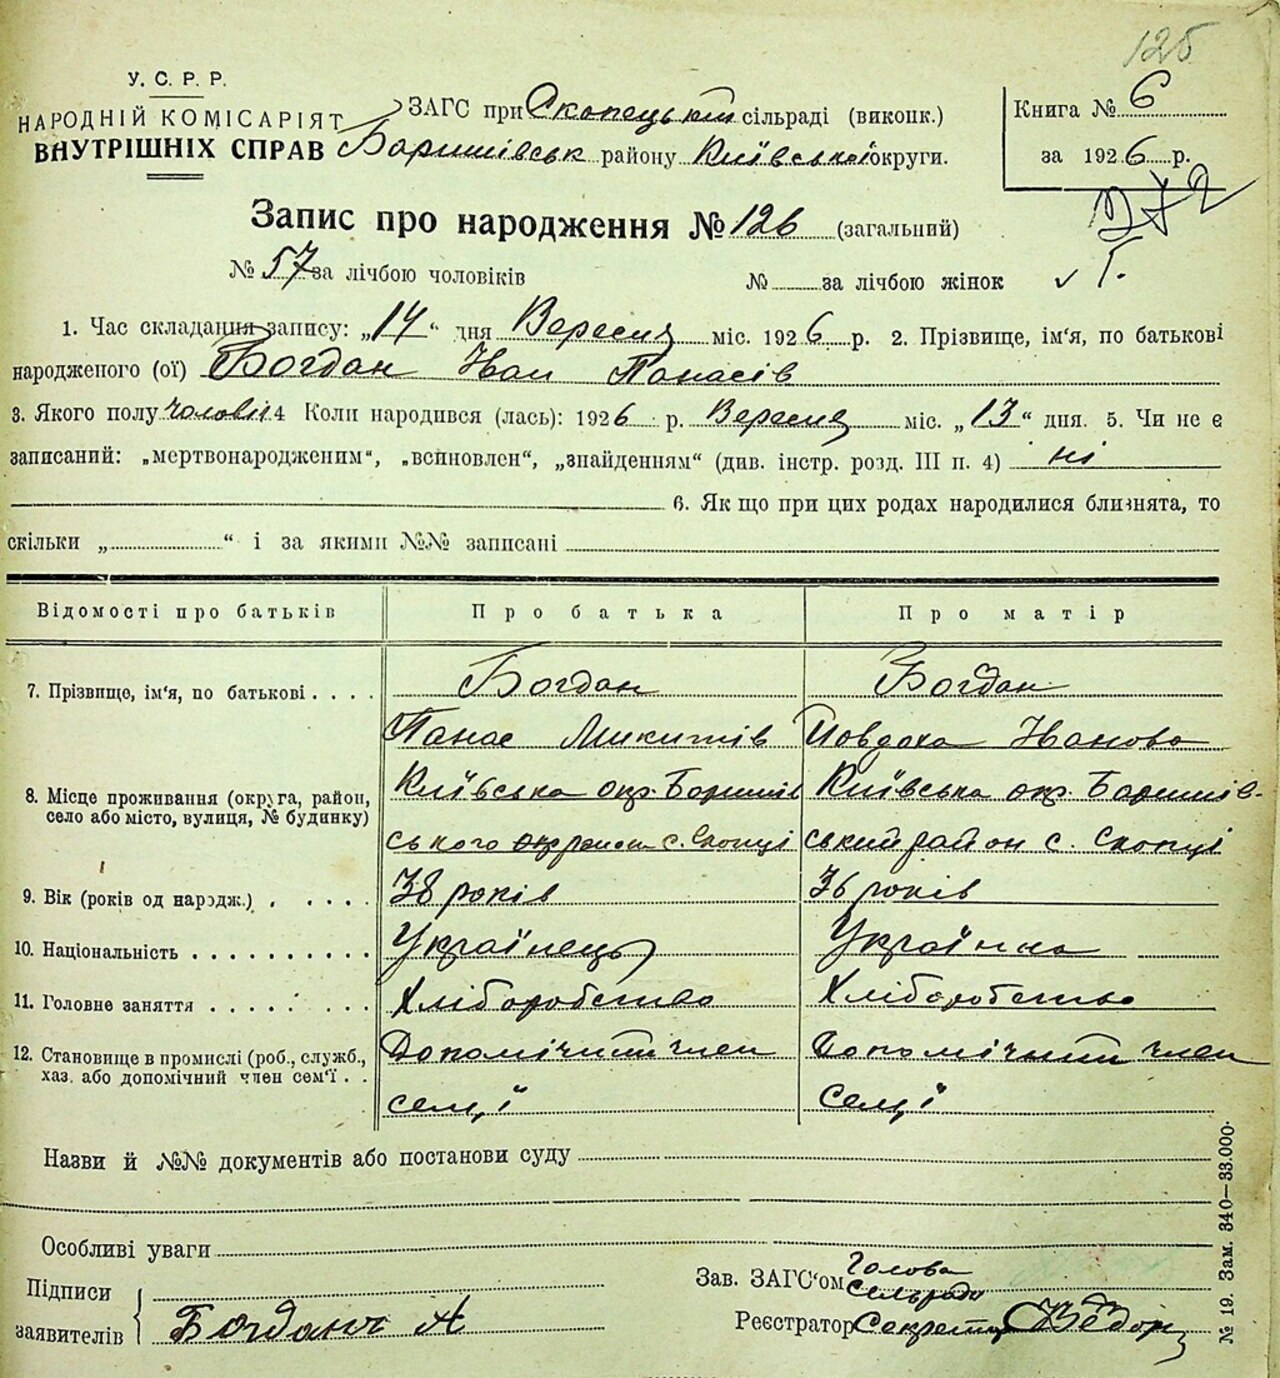 125
У. С. Р. Р.
НАРОДНІЙ КОМІСАРІЯТ
ВНУТРІШНІХ СПРАВ
ЗАГС при Скопецькій сільраді (виконк.)
Баришівськ району Київської округи.
Книга № 6
за 1926 р.
Запис про народження № 126 (загальний)
№ 57 за лічбою чоловіків № за лічбою жінок
1. Час складання запису: „14“ дня Вересня міс. 1926 р. 2. Прізвище, ім‘я, по батькові
народженого (ої) Богдан Іван Панасів
3. Якого полу чоловіч 4 Коли народився (лась): 1926 р. Вересня міс. „13“ дня. 5. Чи не є
записаний: „мертвонародженим“, „всиновлен“, „знайденням“ (див. інстр. розд. III п. 4) ні
6. Як що при цих родах народилися близнята, то
скільки „ “ і за якими №№ записані
Відомості про батьків Про батька Про матір
7. Прізвище, ім‘я, по батькові . . . . Богдан Богдан
Панас Микитів Йовдоха Іванова
8. Місце проживання (округа, район, Київська окр. Баришів Київська окр. Баришів-
село або місто, вулиця, № будинку) ського району с. Скопці ський район с. Скопці
9. Вік (років од народж.) . . . . . 38 років 36 років
10. Національність . . . . . . . . . . Українець Українка
11. Головне заняття . . . . . . . . . Хліборобство Хліборобство
12. Становище в промислі (роб., служб., Допомічний член Допомічний член
хаз. або допомічний член сем‘ї . . семʼї семʼї
Назви й №№ документів або постанови суду
Особливі уваги
Підписи
заявителів Богдан А
Зав. ЗАГС‘ом Голова
Сельради
Реєстратор Секретар
№ 19. Зам. 340—33.000.